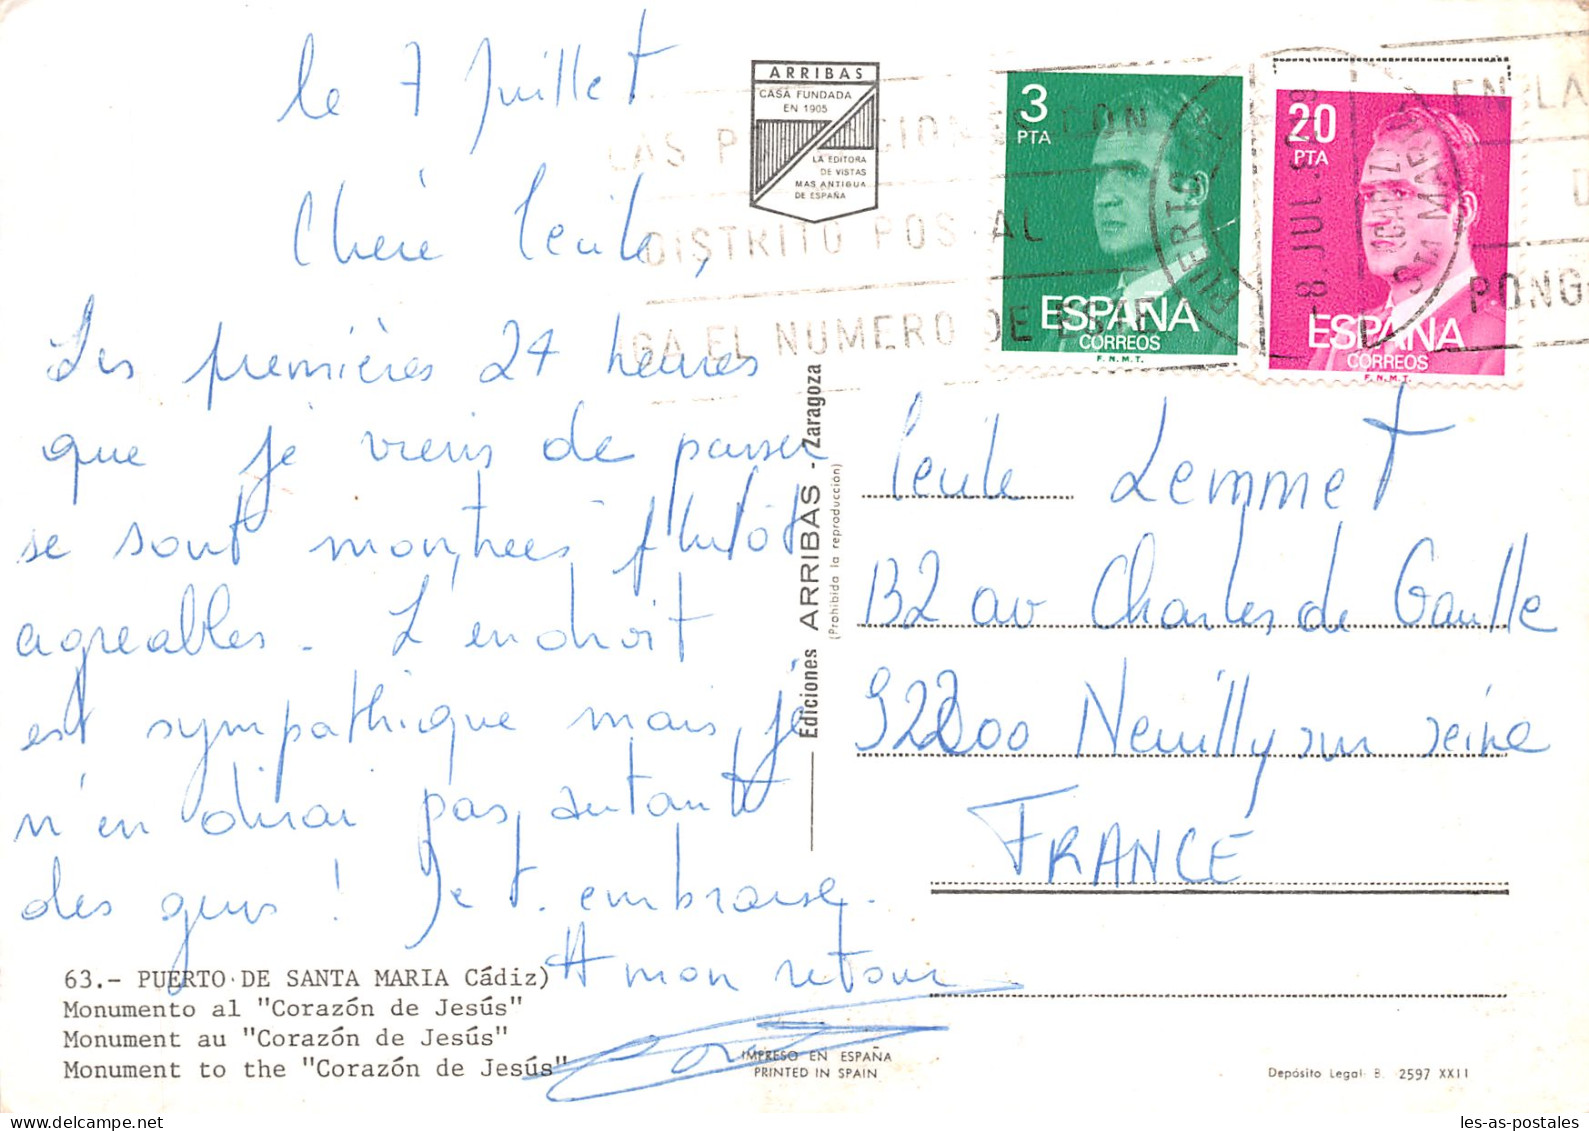 le 7 Juillet
Chère Cécile,
Les premières 24 heures
que je viens de passer
se sont montrées plutôt
agreables. L'endroit
est sympathique mais je
n'en dirai pas autant
des gens ! Je t'embrasse.
A mon retour
63.- PUERTO DE SANTA MARIA Cádiz)
Monumento al "Corazón de Jesús"
Monument au "Corazón de Jesús"
Monument to the "Corazón de Jesús"
ARRIBAS
CASA FUNDADA
EN 1905
LA EDITORA
DE VISTAS
MAS ANTIGUA
DE ESPAÑA
Ediciones ARRIBAS - Zaragoza
(Prohibida la reproducción)
IMPRESO EN ESPAÑA
PRINTED IN SPAIN
3
PTA
ESPAÑA
CORREOS
F.N.M.T.
20
PTA
ESPAÑA
CORREOS
F.N.M.T.
DISTRITO POSTAL
EL NUMERO DE ESTE
PUERTO
STA MARIA
CADIZ
-8.JUL
EN LA
PONGA
Cécile Lemmet
132 av Charles de Gaulle
92200 Neuilly sur seine
FRANCE
Depósito Legal B. 2597 XXII
les-as-postales